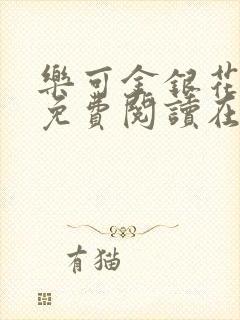 樂可金銀花
免費閱讀在
有猫